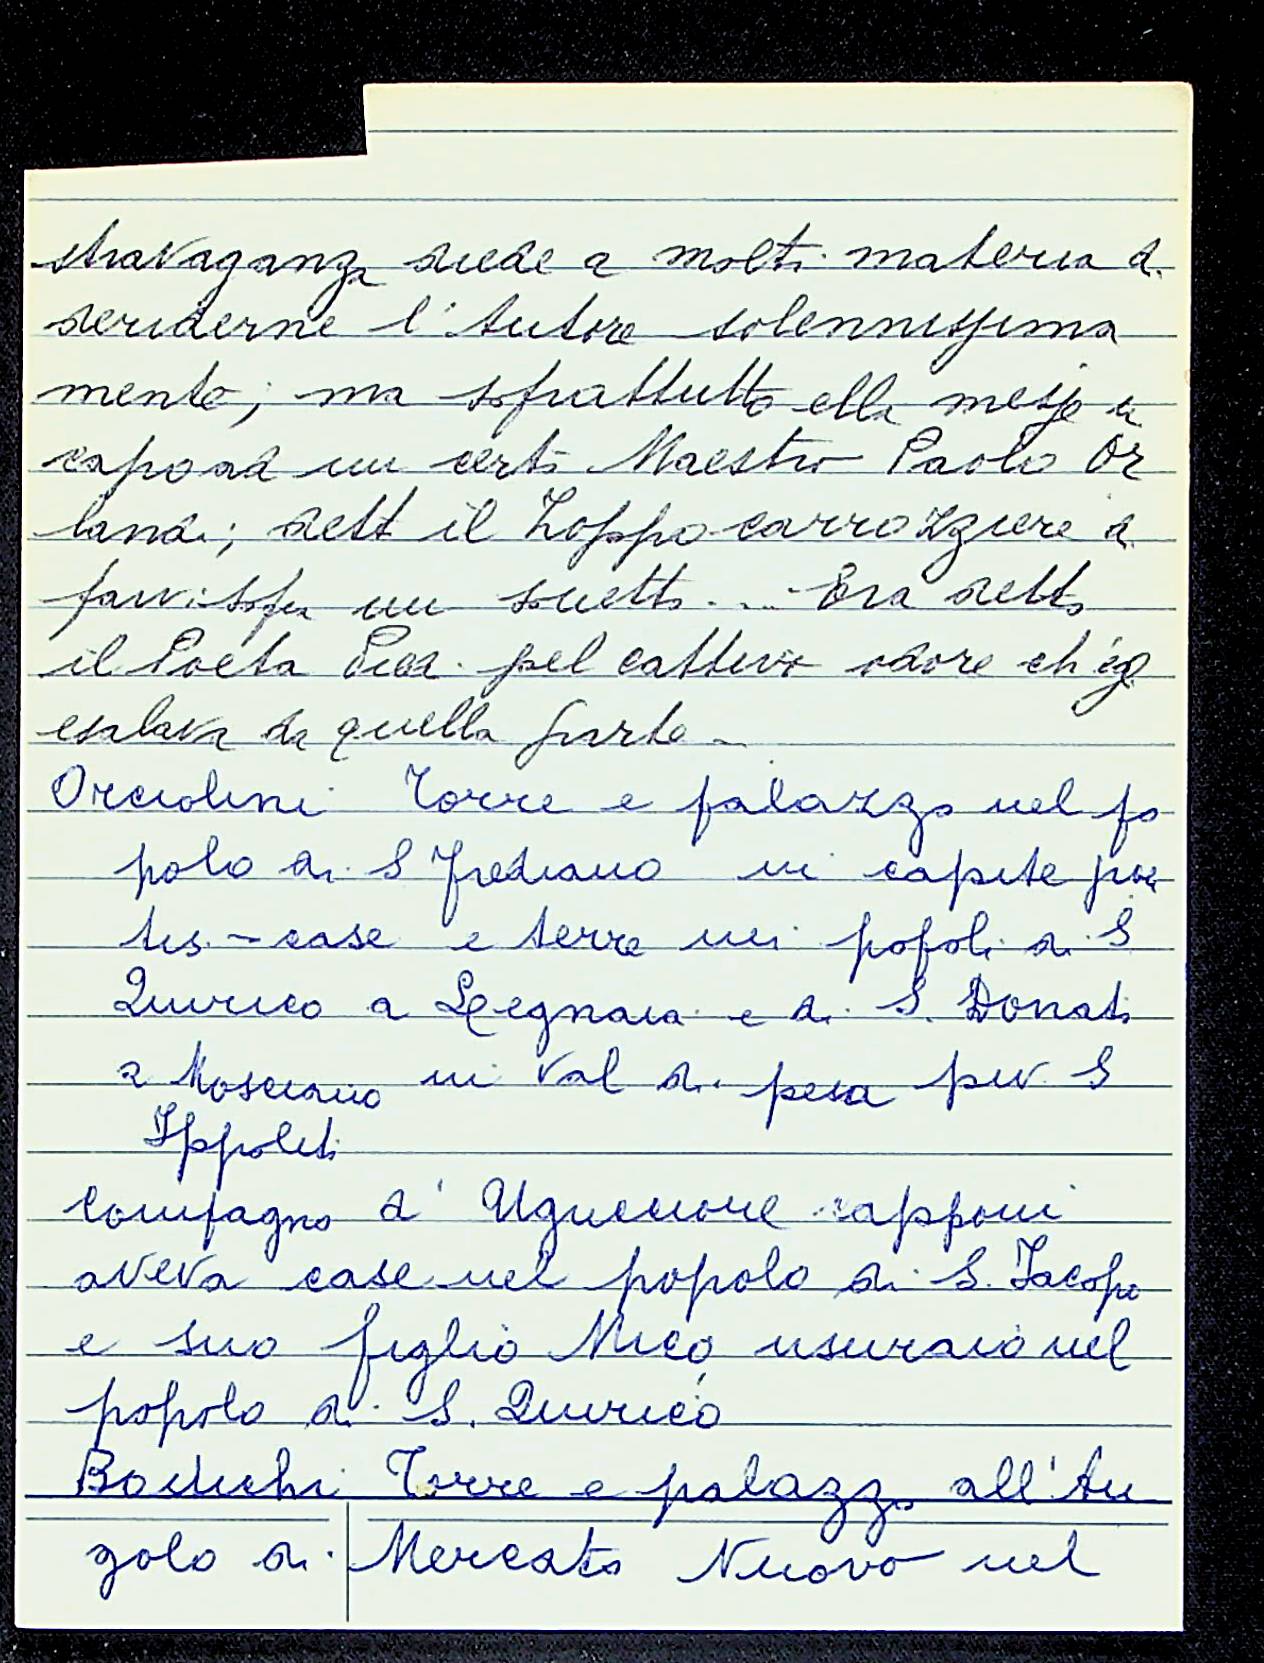 stravaganza diede a molti materia di
deriderne l'Autore solennissima
mente; ma soprattutto ella messe in
capo ad un certo Maestro Paolo Or
landi; dett il Zoppo carrozziere di
farvi sopra un sonetto. ... Era detto
il Poeta Piedi pel cattivo odore ch'eg
esalava da quella parte -
Orciolini Torre e palazzo nel po
polo di S Frediano in capite pon
tis. - case e terre nei popoli di S
Quirico a Legnaia e di S. Donato
a Mosciano in Val di pesa per S
Ippolito
Compagno d' Uguccione capponi
aveva case nel popolo di S. Jacopo
e suo figlio Mico usuraio nel
popolo di S. Quirico
Bostichi Torre e palazzo all'An
golo di Mercato Nuovo nel